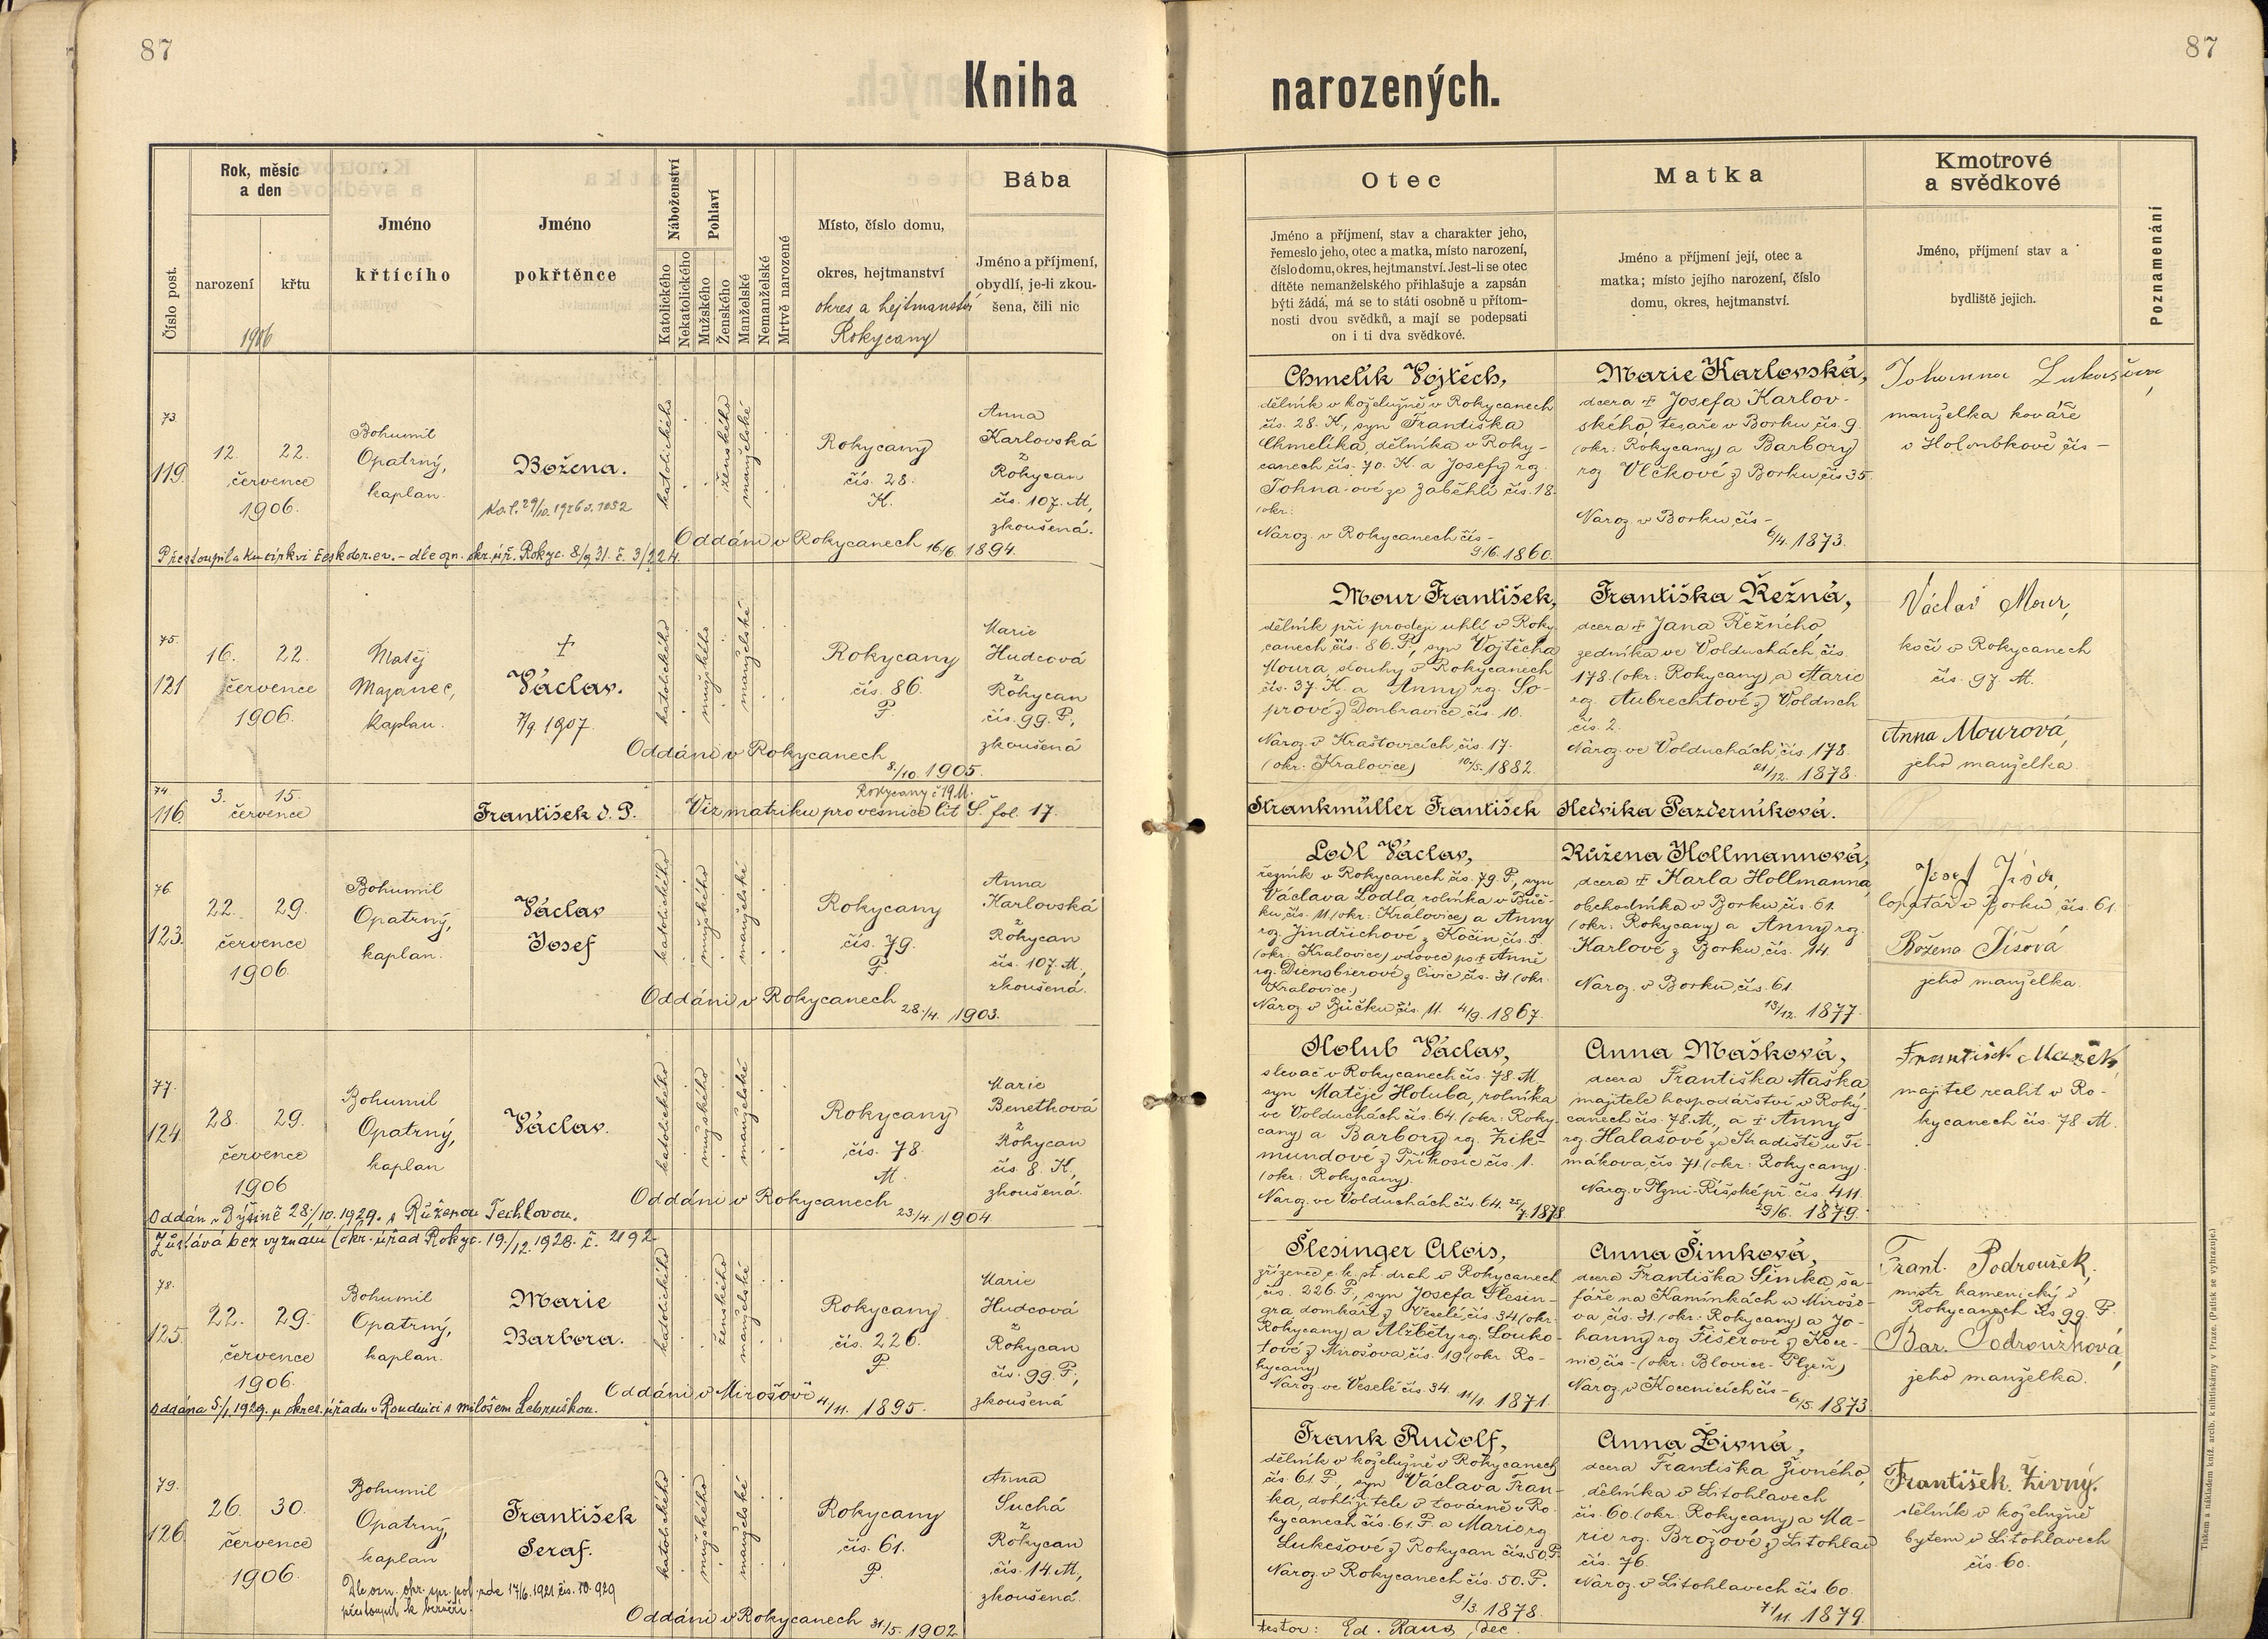 87
87
Kniha
narozených.
Číslo post.
Rok, měsíc
a den
narození
křtu
1906
Jméno
křtícího
Jméno
pokřtěnce
Náboženství
Katolického
Nekatolického
Pohlaví
Mužského
Ženského
Manželské
Nemanželské
Mrtvě narozené
Místo, číslo domu,
okres, hejtmanství
okres a hejtmanství
Rokycany
Bába
Jméno a příjmení,
obydlí, je-li zkou-
šena, čili nic
Otec
Jméno a příjmení, stav a charakter jeho,
řemeslo jeho, otec a matka, místo narození,
číslo domu, okres, hejtmanství. Jest-li se otec
dítěte nemanželského přihlašuje a zapsán
býti žádá, má se to státi osobně u přítom-
nosti dvou svědků, a mají se podepsati
on i ti dva svědkové.
Matka
Jméno a příjmení její, otec a
matka; místo jejího narození, číslo
domu, okres, hejtmanství.
Kmotrové
a svědkové
Jméno, příjmení stav a
bydliště jejich.
Poznamenání
73.
119.
12. 22.
července
1906.
Bohumil
Opatrný,
kaplan.
Božena.
katolického
ženského
manželské
Rokycany
čís. 28.
K.
Anna
Karlovská
z
Rokycan
čís. 107. M,
zkoušená.
Oddáni v Rokycanech 16/6. 1894.
Přestoupila ku církvi českobr. ev. - dle ozn. okr. úř. Rokyc. 8/9 31. č. 3/224.
Chmelík Vojtěch,
dělník v koželužně v Rokycanech
čís. 28. K., syn Františka
Chmelíka, dělníka v Roky-
canech čís. 70. K. a Josefy roz.
ze Zaběhlí čís. 18.
(okr:
Naroz. v Rokycanech čís -
9/6. 1860.
Marie Karlovská,
dcera † Josefa Karlov-
ského, tesaře v Borku, čís. 9.
(okr: Rokycany) a Barbory
roz. Vlčkové z Borku, čís 35.
Naroz. v Borku, čís -
6/4. 1873.
Johanna Lukaščova,
manželka kováře
v Holoubkově čís -
75.
121
16. 22.
července
1906.
Matěj
Mazanec,
kaplan.
†
Václav.
7/9. 1907.
katolického
mužského
manželské
Rokycany
čís. 86.
P.
Marie
Hudcová
z
Rokycan
čís. 99. P,
zkoušená
Oddáni v Rokycanech
8./10. 1905.
Mour František,
dělník při prodeji uhlí v Roky
canech čís. 86. P, syn Vojtěcha
Moura, sluhy v Rokycanech
čís. 37. K. a Anny roz. So-
prové z Doubravice, čís. 10.
Naroz. v Hrašťovicích, čís. 17.
(okr: Kralovice) 10/5. 1882.
Františka Řežná,
dcera † Jana Řežného,
zedníka ve Volduchách, čís.
178. (okr: Rokycany) a Marie
roz. Aubrechtové z Volduch
čís. 2.
Naroz. ve Volduchách čís. 178.
21/12. 1878.
Václav Mour,
kočí v Rokycanech
čís. 97. M.
Anna Mourová,
jeho manželka.
74.
116.
3. 15.
července
František d. P.
Rokycany č 19 M.
Viz matriku pro vesnice lit. Š. fol. 17.
Strankmüller František
Hedvika Pazderníková.
76.
123.
22. 29.
července
1906.
Bohumil
Opatrný,
kaplan.
Václav
Josef
katolického
mužského
manželské
Rokycany
čís. 79.
P.
Anna
Karlovská
z
Rokycan
čís. 107. M,
zkoušená.
Oddáni v Rokycanech
28./4. 1903.
Lodl Václav,
řezník v Rokycanech čís. 79. P, syn
Václava Lodla, rolníka v Būč-
ku, čís. 11. (okr: Kralovice) a Anny
roz. Jindřichové z Kočin, čís. 5.
(okr: Kralovice) vdovec po † Anně
roz. Diensbierové z Civic čís. 31 (okr.
Kralovice.)
Naroz. v Bučku, čís. 11. 4/9. 1867.
Růžena Hollmannová,
dcera † Karla Hollmanna,
obchodníka v Borku, čís. 61.
(okr: Rokycany) a Anny roz.
Karlové z Borku, čís. 14.
Naroz. v Borku, čís. 61.
13/12. 1877.
Josef Jíša,
lopatář v Borku, čís. 61.
Božena Jíšová
jeho manželka.
77.
124.
28. 29.
července
1906
Bohumil
Opatrný,
kaplan
Václav.
katolického
mužského
manželské
Rokycany
čís. 78.
M.
Marie
Benetková
z
Rokycan
čís. 8. K,
zkoušená.
Oddáni v Rokycanech
23./4. 1904.
Oddán v Dýšině 28./10. 1929. s Růženou Techlovou.
Zůstává bez vyznání (okr. úřad Rokyc. 19./12. 1928. č. 2192.
Holub Václav,
slevač v Rokycanech čís. 78. M,
syn Matěje Holuba, rolníka
ve Volduchách čís. 64. (okr: Roky-
cany) a Barbory roz. Zik-
mundové z Příkosic čís. 1.
(okr: Rokycany).
Naroz. ve Volduchách čís. 64. 25/7. 1878
Anna Mašková,
dcera Františka Maška
majitele hospodářství v Roky-
canech čís. 78. M, a † Anny
roz. Halašové ze Stradiště u Ti-
mákova, čís. 71. (okr: Rokycany).
Naroz. v Plzni-Říšské př. čís. 411.
29/6. 1879.
František Mašek,
majitel realit v Ro-
kycanech čís. 78. M.
78.
125.
22. 29.
července
1906.
Bohumil
Opatrný,
kaplan.
Marie
Barbora.
katolického
ženského
manželské
Rokycany
čís. 226.
P.
Marie
Hudcová
z
Rokycan
čís. 99. P,
zkoušená
Oddáni v Mirošově 4/11. 1895.
Oddána 5/1. 1929. u okres. úřadu v Roudnici s Milošem Lebruškou.
Šlesinger Alois,
zřízenec c. k. st. drah v Rokycanech
čís. 226. P., syn Josefa Šlesin-
gra domkáře z Veselé, čís. 34 (okr:
Rokycany) a Alžběty roz. Louko-
tové z Mirošova, čís. 19. (okr. Ro-
kycany)
Naroz. ve Veselé čís. 34. 11/1. 1871.
Anna Šimková,
dcera Františka Šimka, ša-
fáře na Kamínkách u Mirošo-
va, čís. 31. (okr: Rokycany) a Jo-
hanny roz. Fišerové z Koce-
nic, čís - (okr: Blovice - Plzeň)
Naroz. v Kocenicích čís -
6/5. 1873.
Frant. Podroužek,
mistr kamenický v
Rokycanech čís 99. P.
Bar. Podroužková,
jeho manželka.
79.
126.
26. 30.
července
1906.
Bohumil
Opatrný,
kaplan
František
Seraf.
katolického
mužského
manželské
Rokycany
čís. 61.
P.
Anna
Suchá
z
Rokycan
čís. 14. M,
zkoušená.
Dle ozn. okr. spr. pol. zde 17/6. 1921 čís. 10.929
přestoupil k bezvěří.
Oddáni v Rokycanech 31/5. 1902.
Frank Rudolf,
dělník v koželužně v Rokycanech
čís 61. P, syn Václava Fran-
ka, dohližitele v továrně v Ro-
kycanech čís. 61. P. a Marie roz
Lukešové z Rokycan čís. 50. P.
Naroz. v Rokycanech čís. 50. P.
9/3. 1878.
Anna Živná,
dcera Františka Živného,
dělníka v Litohlavech
čís. 60. (okr: Rokycany) a Ma-
rie roz. Brožové z Litohlav
čís. 76.
Naroz. v Litohlavech čís 60.
7/11. 1879.
František Živný.
dělník v koželužně
bytem v Litohlavech
čís. 60.
testor: Ed. Raus, děc.
Tiskem a nákladem kníž. arcib. knihtiskárny v Praze. (Patisk se vyhrazuje.)